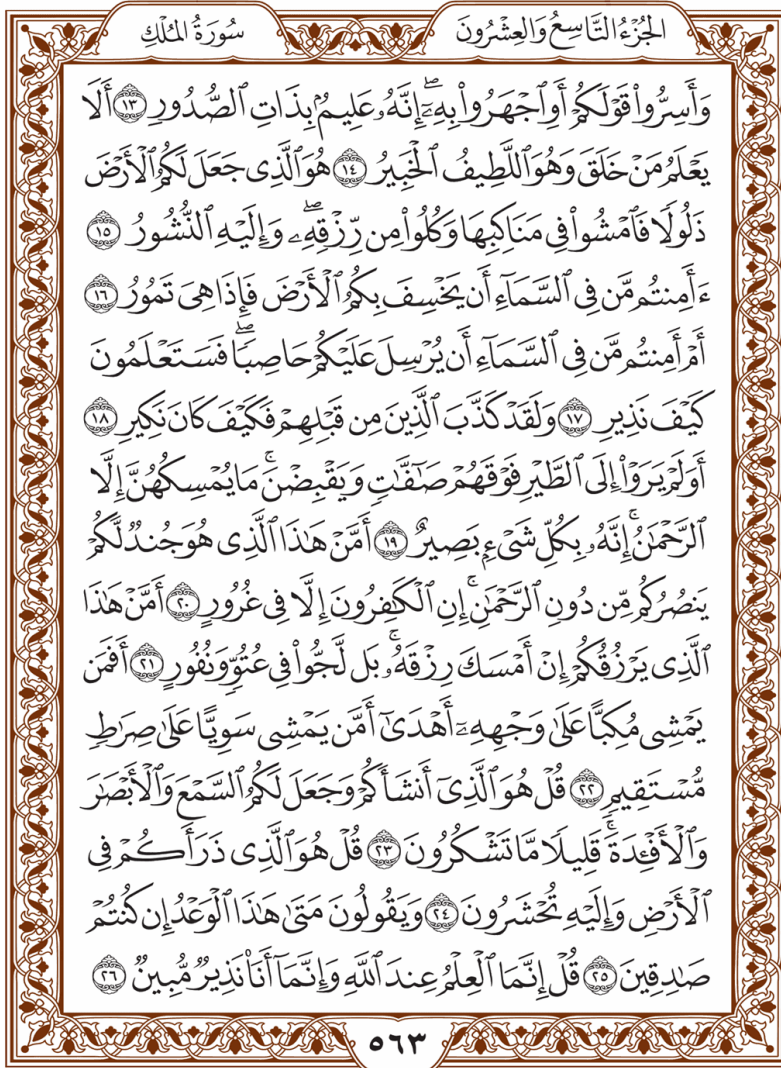 الجُزْءُ التَّاسِعُ وَالعِشْرُونَ
سُورَةُ المُلْكِ
وَأَسِرُّوا۟ قَوْلَكُمْ أَوِ ٱجْهَرُوا۟ بِهِۦٓۖ إِنَّهُۥ عَلِيمٌۢ بِذَاتِ ٱلصُّدُورِ ١٣ أَلَا
يَعْلَمُ مَنْ خَلَقَ وَهُوَ ٱللَّطِيفُ ٱلْخَبِيرُ ١٤ هُوَ ٱلَّذِى جَعَلَ لَكُمُ ٱلْأَرْضَ
ذَلُولًا فَٱمْشُوا۟ فِى مَنَاكِبِهَا وَكُلُوا۟ مِن رِّزْقِهِۦۖ وَإِلَيْهِ ٱلنُّشُورُ ١٥
ءَأَمِنتُم مَّن فِى ٱلسَّمَآءِ أَن يَخْسِفَ بِكُمُ ٱلْأَرْضَ فَإِذَا هِىَ تَمُورُ ١٦
أَمْ أَمِنتُم مَّن فِى ٱلسَّمَآءِ أَن يُرْسِلَ عَلَيْكُمْ حَاصِبًاۖ فَسَتَعْلَمُونَ
كَيْفَ نَذِيرِ ١٧ وَلَقَدْ كَذَّبَ ٱلَّذِينَ مِن قَبْلِهِمْ فَكَيْفَ كَانَ نَكِيرِ ١٨
أَوَلَمْ يَرَوْا۟ إِلَى ٱلطَّيْرِ فَوْقَهُمْ صَٰٓفَّٰتٍ وَيَقْبِضْنَۚ مَا يُمْسِكُهُنَّ إِلَّا
ٱلرَّحْمَٰنُۚ إِنَّهُۥ بِكُلِّ شَىْءٍۭ بَصِيرٌ ١٩ أَمَّنْ هَٰذَا ٱلَّذِى هُوَ جُندٌ لَّكُمْ
يَنصُرُكُم مِّن دُونِ ٱلرَّحْمَٰنِۚ إِنِ ٱلْكَٰفِرُونَ إِلَّا فِى غُرُورٍ ٢٠ أَمَّنْ هَٰذَا
ٱلَّذِى يَرْزُقُكُمْ إِنْ أَمْسَكَ رِزْقَهُۥۚ بَل لَّجُّوا۟ فِى عُتُوٍّ وَنُفُورٍ ٢١ أَفَمَن
يَمْشِى مُكِبًّا عَلَىٰ وَجْهِهِۦٓ أَهْدَىٰٓ أَمَّن يَمْشِى سَوِيًّا عَلَىٰ صِرَٰطٍ
مُّسْتَقِيمٍ ٢٢ قُلْ هُوَ ٱلَّذِىٓ أَنشَأَكُمْ وَجَعَلَ لَكُمُ ٱلسَّمْعَ وَٱلْأَبْصَٰرَ
وَٱلْأَفْـِٔدَةَۚ قَلِيلًا مَّا تَشْكُرُونَ ٢٣ قُلْ هُوَ ٱلَّذِى ذَرَأَكُمْ فِى
ٱلْأَرْضِ وَإِلَيْهِ تُحْشَرُونَ ٢٤ وَيَقُولُونَ مَتَىٰ هَٰذَا ٱلْوَعْدُ إِن كُنتُمْ
صَٰدِقِينَ ٢٥ قُلْ إِنَّمَا ٱلْعِلْمُ عِندَ ٱللَّهِ وَإِنَّمَآ أَنَا۠ نَذِيرٌ مُّبِينٌ ٢٦
٥٦٣